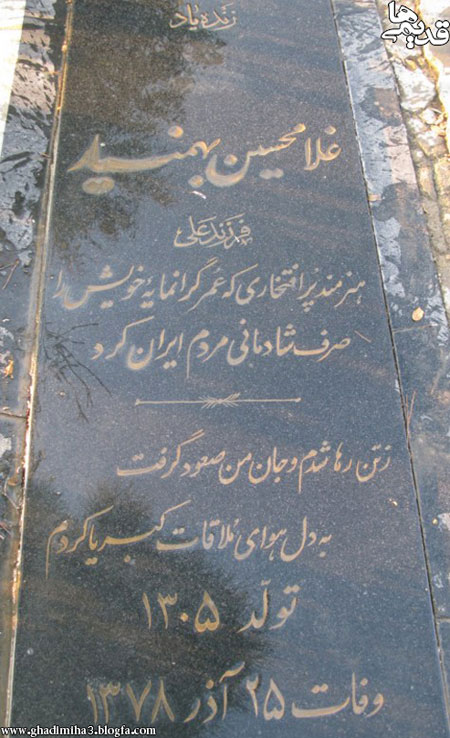 قدیمی‌ها
زنده یاد
غلامحسین بهمنیار
فرزند علی
هنرمند پر افتخاری که عمر گرانمایهٔ خویش را
صرف شادمانی مردم ایران کرد
زتن رها شدم و جان من صعود گرفت
به دل هوای ملاقات کبریا کردم
تولّد ۱۳۰۵
وفات ۲۵ آذر ۱۳۷۸
www.ghadimiha3.blogfa.com